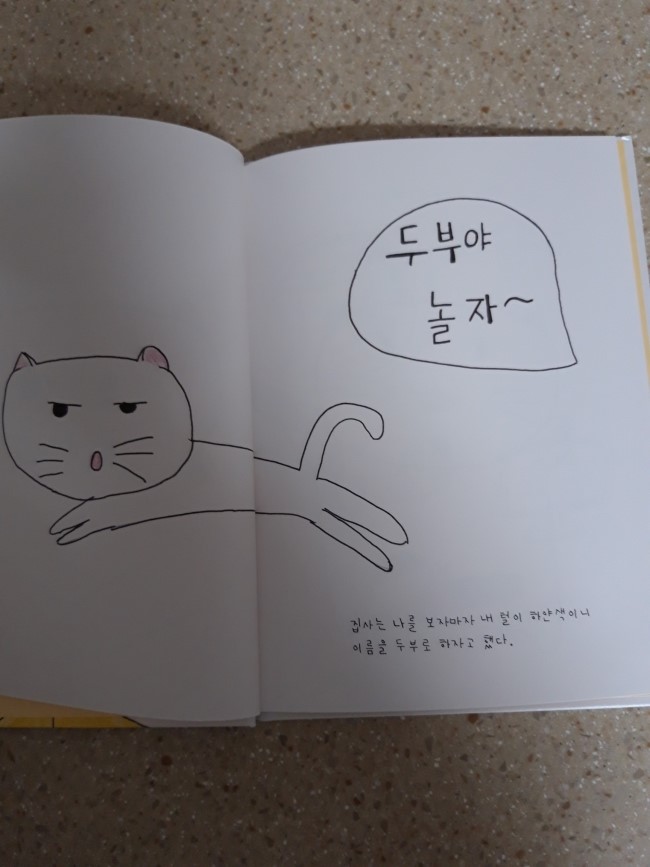 두부야
놀자~
집사는 나를 보자마자 내 털이 하얀색이니
이름을 두부로 하자고 했다.